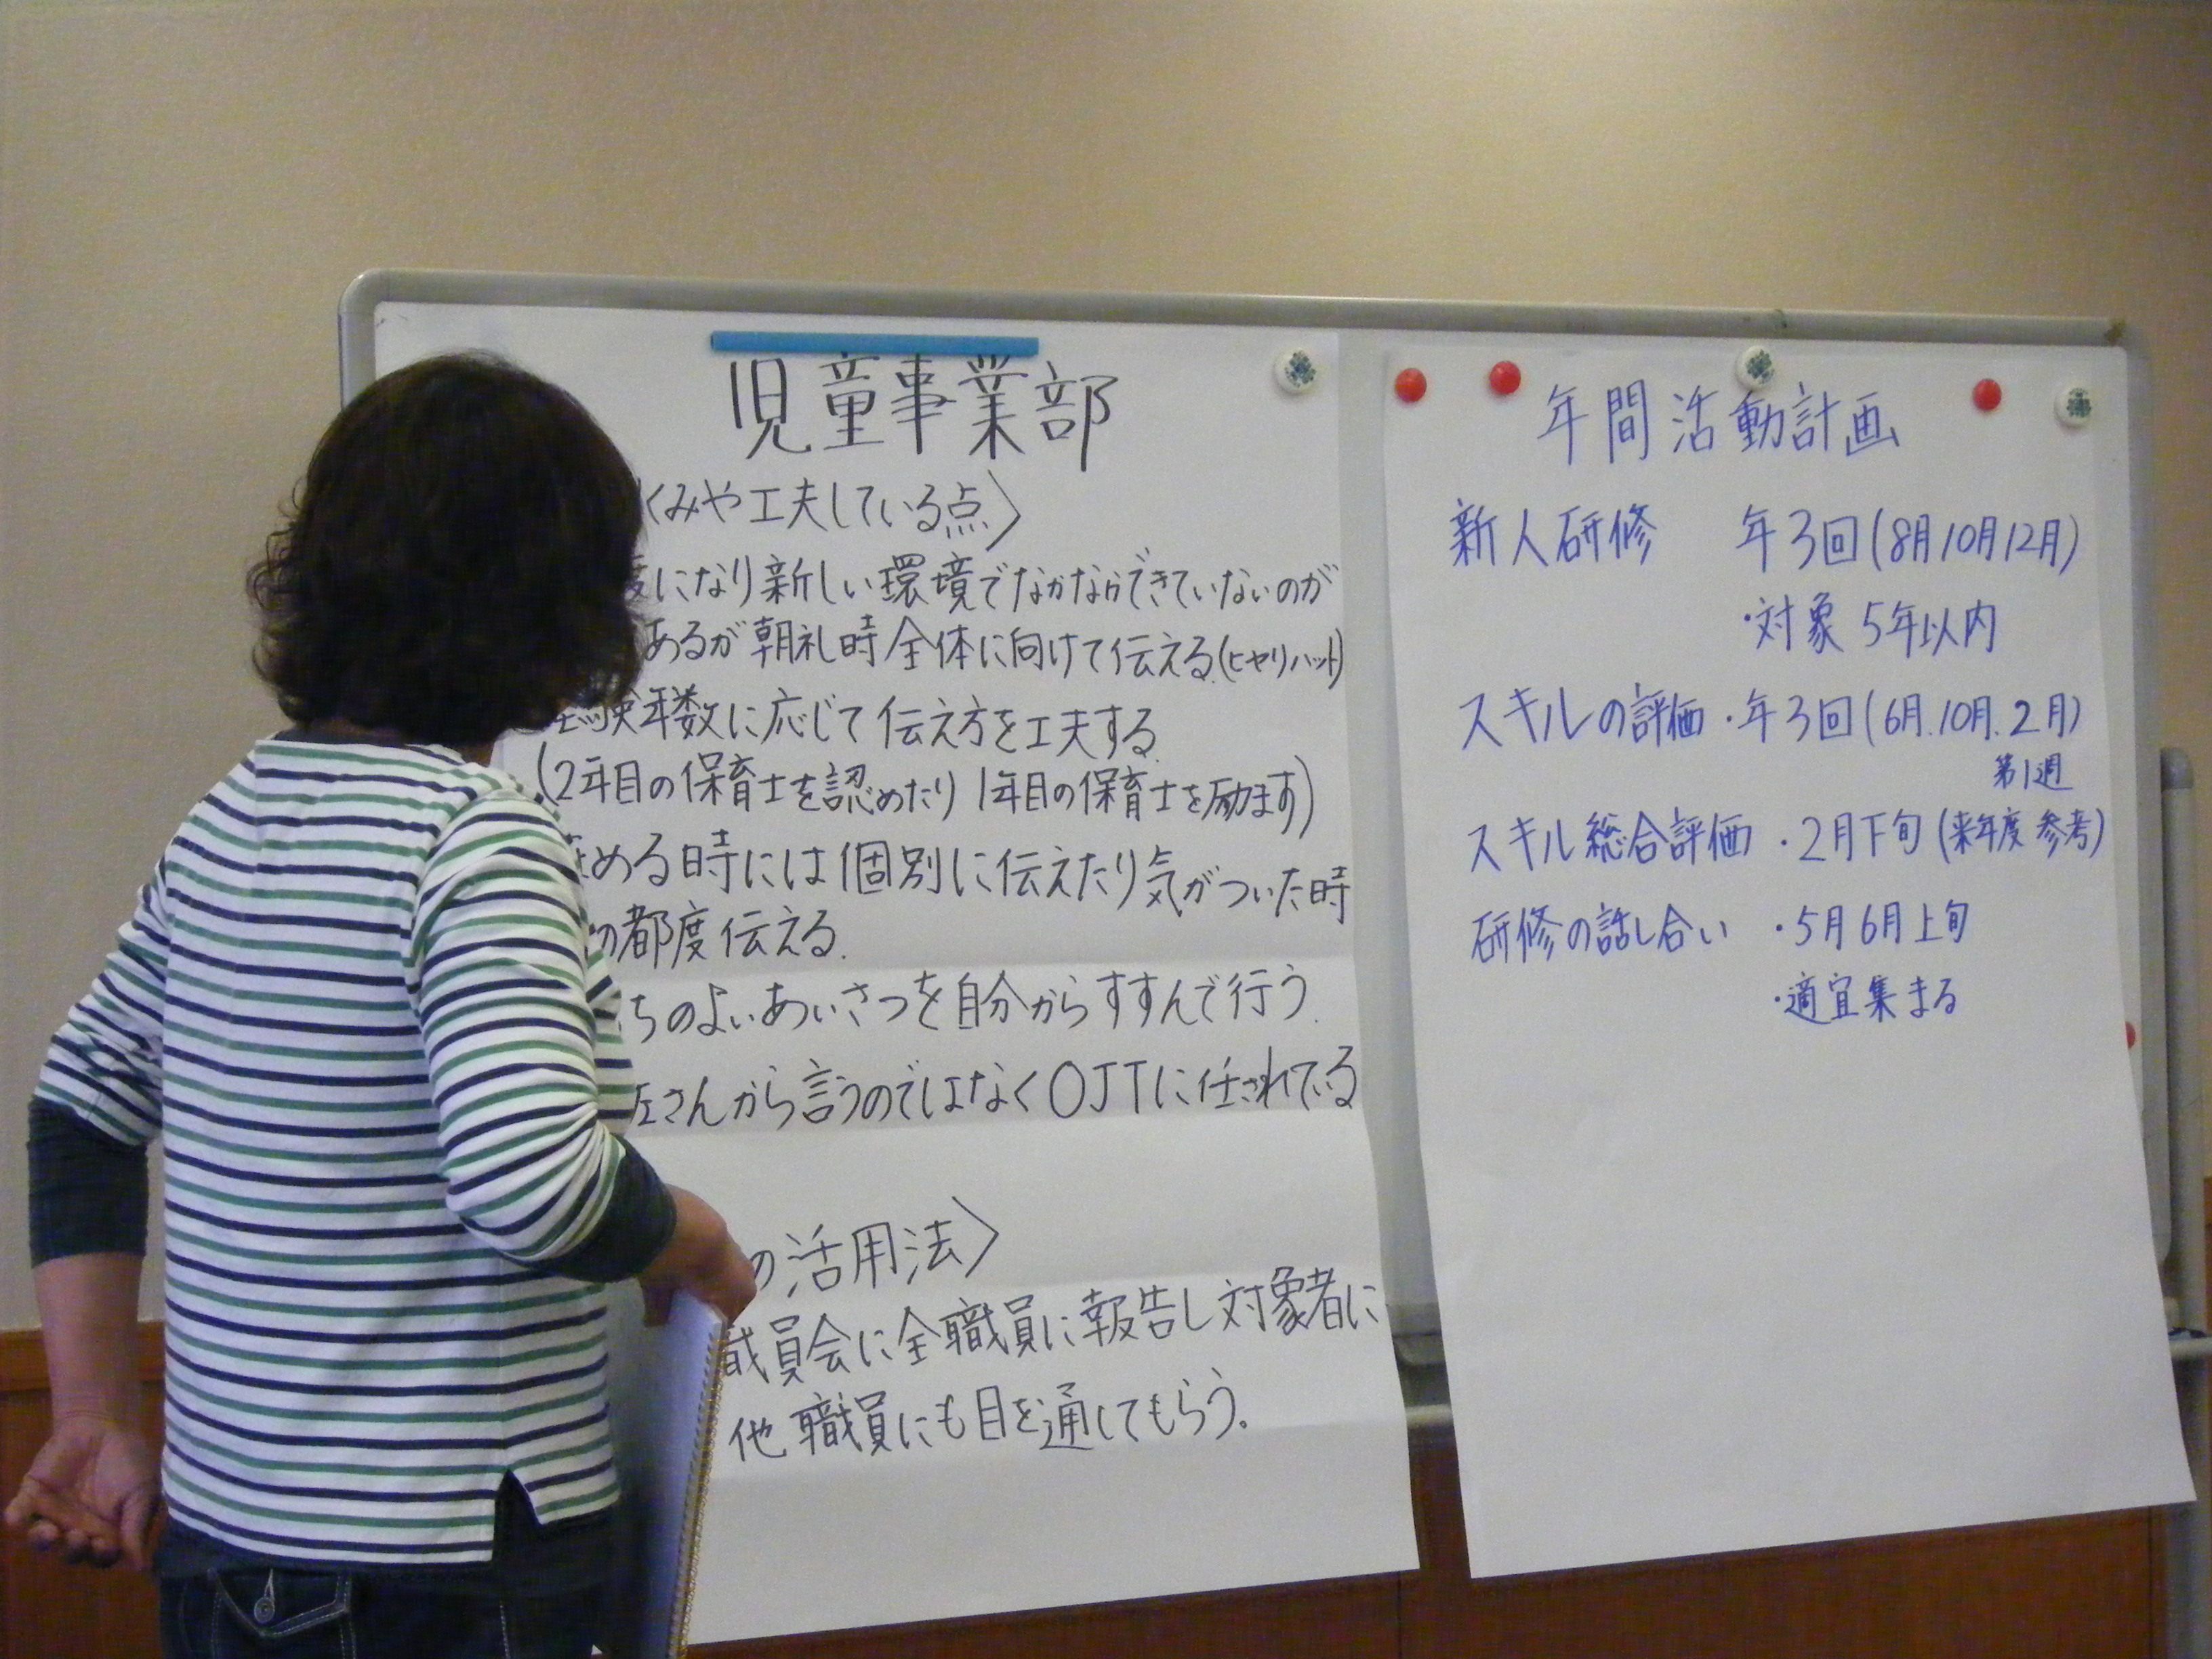 児童事業部
くみや工夫している点〉
になり新しい環境でなかなかできていないのが
あるが朝礼時全体に向けて伝える(ヒヤリハット)
験年数に応じて伝え方を工夫する
(2年目の保育士を認めたり1年目の保育士を励ます)
める時には個別に伝えたり気がついた時
の都度伝える.
ちのよいあいさつを自分からすすんで行う.
さんから言うのではなくOJTに任されている
の活用法〉
職員会に全職員に報告し対象者に
他職員にも目を通してもらう。
年間活動計画
新人研修 年3回(8月10月12月)
・対象 5年以内
スキルの評価・年3回(6月.10月.2月)
第1週
スキル総合評価・2月下旬(来年度参考)
研修の話し合い・5月6月上旬
・適宜集まる